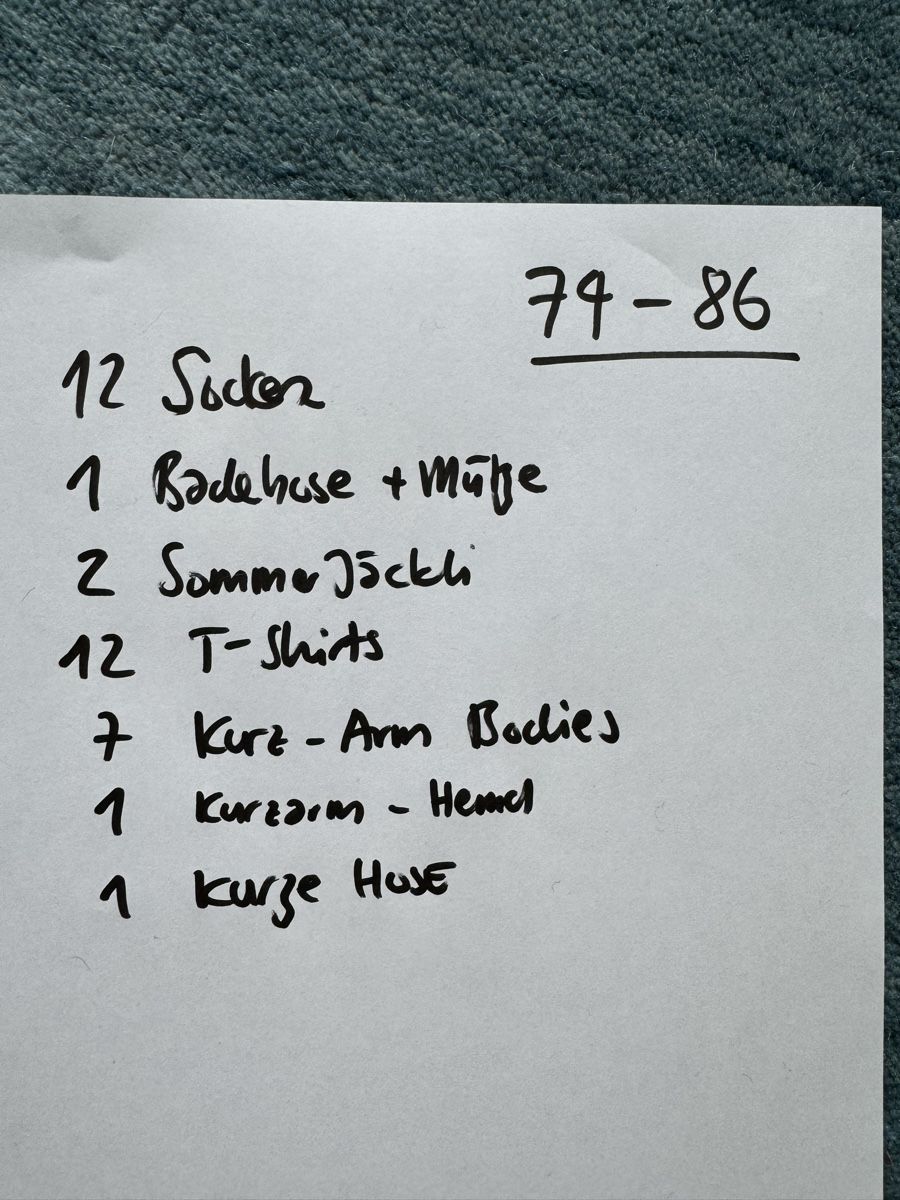 74 - 86
12 Socken
1 Badehose + Mütze
2 Sommer Jäckli
12 T-Shirts
7 Kurz - Arm Bodies
1 Kurzarm - Hemd
1 Kurze Hose